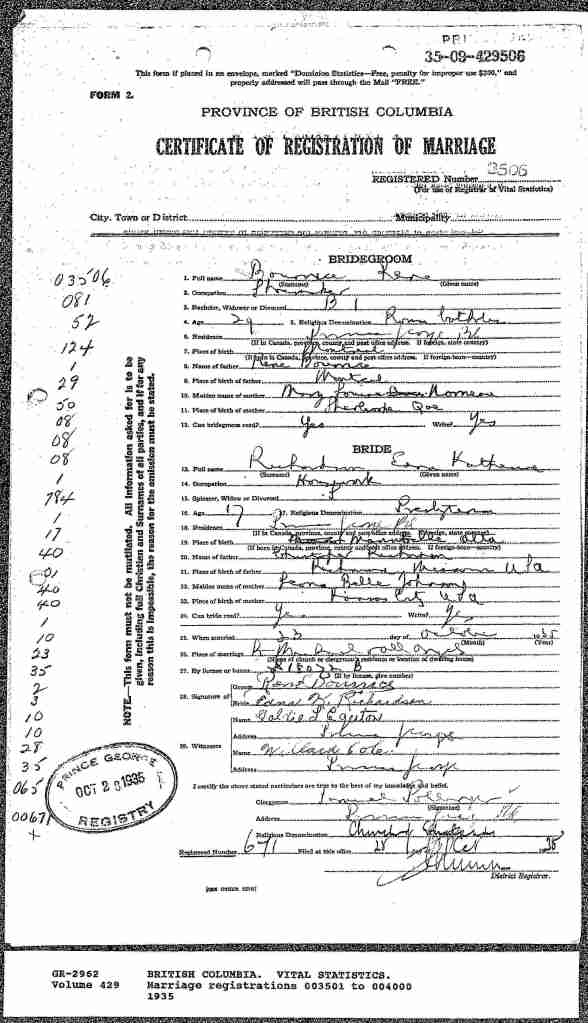 35-09-429506
This form if placed in an envelope, marked "Dominion Statistics—Free, penalty for improper use $300," and
properly addressed will pass through the Mail "FREE."
FORM 2.
PROVINCE OF BRITISH COLUMBIA
CERTIFICATE OF REGISTRATION OF MARRIAGE
REGISTERED Number 3506
(For use of Registrar of Vital Statistics)
City, Town or District Municipality
BRIDEGROOM
1. Full name Rene
(Surname) (Given name)
2. Occupation
3. Bachelor, Widower or Divorced B 1
4. Age 29 5. Religious Denomination Roman Catholic
6. Residence Prince George BC
(If in Canada, province, county and post office address. If foreign, state country)
7. Place of birth Montreal
(If born in Canada, province, county and post office address. If foreign-born—country)
8. Name of father Rene
9. Place of birth of father Montreal
10. Maiden name of mother Mary Louise
11. Place of birth of mother Sherbrooke Que
12. Can bridegroom read? Yes Write? Yes
BRIDE
13. Full name Richardson Edna Katherine
(Surname) (Given name)
14. Occupation Housework
15. Spinster, Widow or Divorced
16. Age 17 17. Religious Denomination Presbyterian
18. Residence Prince George BC
(If in Canada, province, county and post office address. If foreign, state country)
19. Place of birth Alta
(If born in Canada, province, county and post office address. If foreign-born—country)
20. Name of father Richardson
21. Place of birth of father Richmond Missouri USA
22. Maiden name of mother Leona Belle Johnson
23. Place of birth of mother Kansas City USA
24. Can bride read? Yes Write? Yes
25. When married 23 day of October 1935
(Month) (Year)
26. Place of marriage
(Name of church or clergyman's residence or location of dwelling house)
27. By license or banns B
(If by license, give number)
28. Signature of
Groom Rene
Bride Edna K. Richardson
29. Witnesses
Name L Egerton
Address Prince George
Name Willard Cole
Address Prince George
I certify the above stated particulars are true to the best of my knowledge and belief.
Clergyman
(Signature)
Address Prince George BC
Religious Denomination Church of
Registered Number 671 Filed at this office 28 day of Oct 1935
District Registrar.
[SEE OTHER SIDE]
NOTE.—This form must not be mutilated. All information asked for is to be
given, including full Christian and Surnames of all parties, and if for any
reason this is impossible, the reason for the omission must be stated.
03506
081
52
124
1
29
50
08
08
08
1
784
1
17
40
01
40
40
1
10
23
35
2
3
10
10
28
35
065
00671
+
PRINCE GEORGE
OCT 28 1935
REGISTRY
GR-2962 BRITISH COLUMBIA. VITAL STATISTICS.
Volume 429 Marriage registrations 003501 to 004000
1935